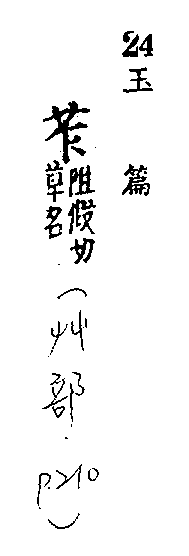 24玉篇
苲阻假切草名(艸部.P.210)